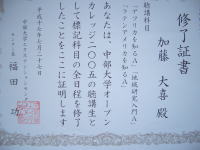 修了証書
加藤大喜殿
聴講科目
「アフリカを知るA」「地域研究入門A」
「ラテンアメリカを知るA」
あなたは、中部大学オープン
カレッジ二〇〇五の聴講生と
して標記科目の全日程を修了
したことをここに証明します
平成十七年七月二十七日
中部大学エクステンションセンター
センター長 福田 功